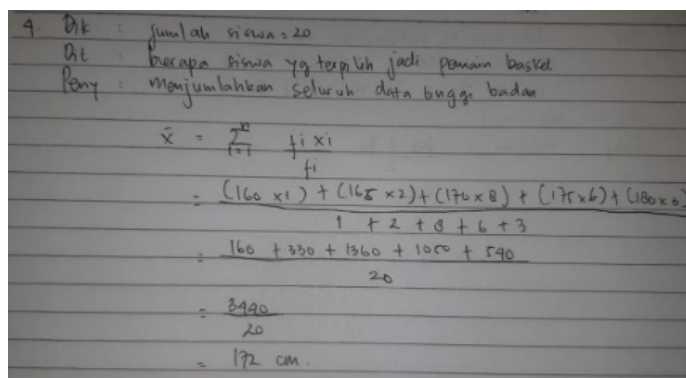 4. Dik : jumlah siswa = 20
Dit : berapa siswa yg terpilih jadi pemain basket
Peny : menjumlahkan seluruh data tinggi badan
x̄ = Σ i=1 fi xi / fi
= (160 x 1) + (165 x 2) + (170 x 8) + (175 x 6) + (180 x 3)
1 + 2 + 8 + 6 + 3
= 160 + 330 + 1360 + 1050 + 540
20
= 3440
20
= 172 cm.